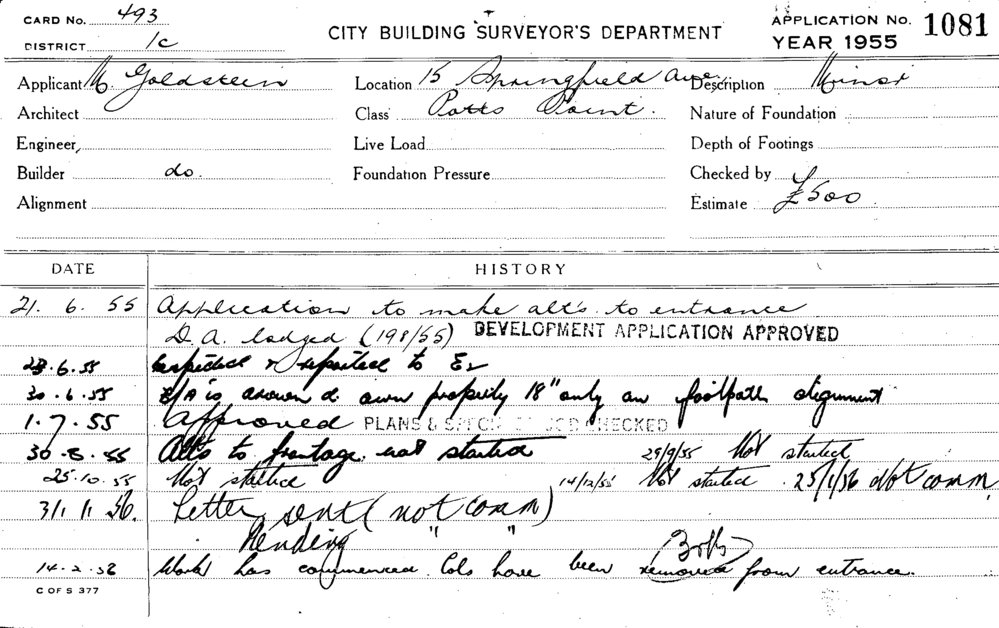 CARD No. 493
DISTRICT 1c
CITY BUILDING SURVEYOR'S DEPARTMENT
APPLICATION No. 1081
YEAR 1955
Applicant M. Goldstein
Location 15 Springfield Ave.
Description Minor
Architect
Class Potts Point.
Nature of Foundation
Engineer
Live Load
Depth of Footings
Builder do.
Foundation Pressure
Checked by
Alignment
Estimate £500
DATE HISTORY
21. 6. 55 Application to make alt's. to entrance
D.A. lodged (198/55) DEVELOPMENT APPLICATION APPROVED
28.6.55 Inspected & reported to
30.6.55 is own property 18" only on footpath alignment
1.7.55 Approved PLANS & CHECKED
30.8.55 Alts to frontage not started 29/9/55 Not started
25.10.55 Not started 14/12/55 Not started 25/1/56 Not comm.
31.1.56. Letter sent (not comm)
Pending " "
14.2.56 Work has commenced. Cols have been removed from entrance.
C OF S 377